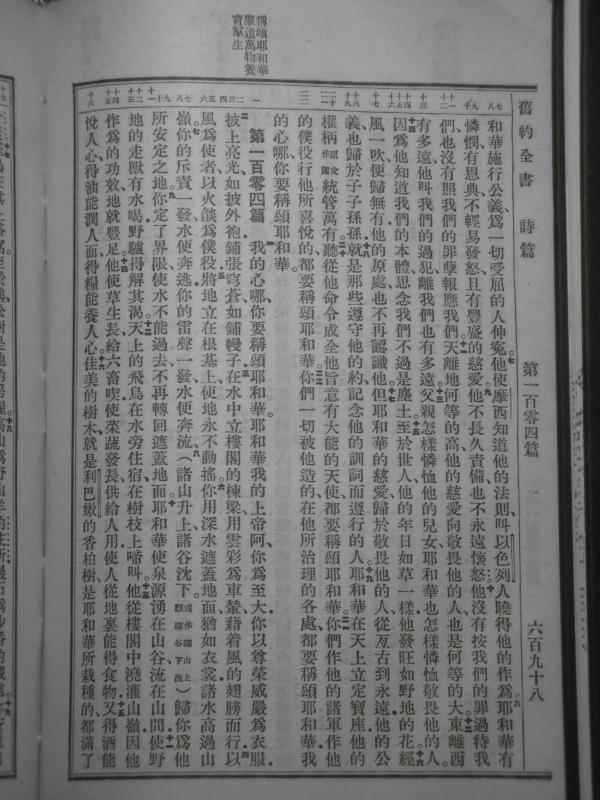 稱頌耶和華
育羣生
舊約全書 詩篇 第一百零四篇 六百九十八
和華施行公義爲一切受屈的人伸冤他使摩西知道他的法則叫以色列人曉得他的作爲耶和華有
憐憫有恩典不輕易發怒且有豐盛的慈愛他不長久責備也不永遠懷怒他沒有按我們的罪過待我
們也沒有照我們的罪孽報應我們天離地何等的高他的慈愛向敬畏他的人也是何等的大東離西
有多遠他叫我們的過犯離我們也有多遠父親怎樣憐恤他的兒女耶和華也怎樣憐恤敬畏他的人
因爲他知道我們的本體思念我們不過是塵土至於世人他的年日如草一樣他發旺如野地的花經
風一吹便歸無有他的原處也不再認識他但耶和華的慈愛歸於敬畏他的人從亙古到永遠他的公
義也歸於子子孫孫就是那些遵守他的約記念他的訓詞而遵行的人耶和華在天上立定寶座他的
權柄原文作國統管萬有聽從他命令成全他旨意有大能的天使都要稱頌耶和華你們作他的諸軍作他
的僕役行他所喜悅的都要稱頌耶和華你們一切被他造的在他所治理的各處都要稱頌耶和華我
的心哪你要稱頌耶和華
第一百零四篇 我的心哪你要稱頌耶和華耶和華我的上帝阿你爲至大你以尊榮威嚴爲衣服
披上亮光如披外袍鋪張穹蒼如鋪幔子在水中立樓閣的棟梁用雲彩爲車輦藉着風的翅膀而行以
風爲使者以火燄爲僕役將地立在根基上使地永不動搖你用深水遮蓋地面猶如衣裳諸水高過山
嶺你的斥責一發水便奔逃你的雷聲一發水便奔流（諸山升上諸谷沈下或作隨山上翻隨谷下流）歸你爲他
所安定之地你定了界限使水不能過去不再轉回遮蓋地面耶和華使泉源湧在山谷流在山間使野
地的走獸有水喝野驢得解其渴天上的飛鳥在水旁住宿在樹枝上啼叫他從樓閣中澆灌山嶺因他
作爲的功效地就豐足他使草生長給六畜喫使菜蔬發長供給人用使人從地裏能得食物又得酒能
悅人心得油能潤人面得糧能養人心佳美的樹木就是利巴嫩的香柏樹是耶和華所栽種的都滿了